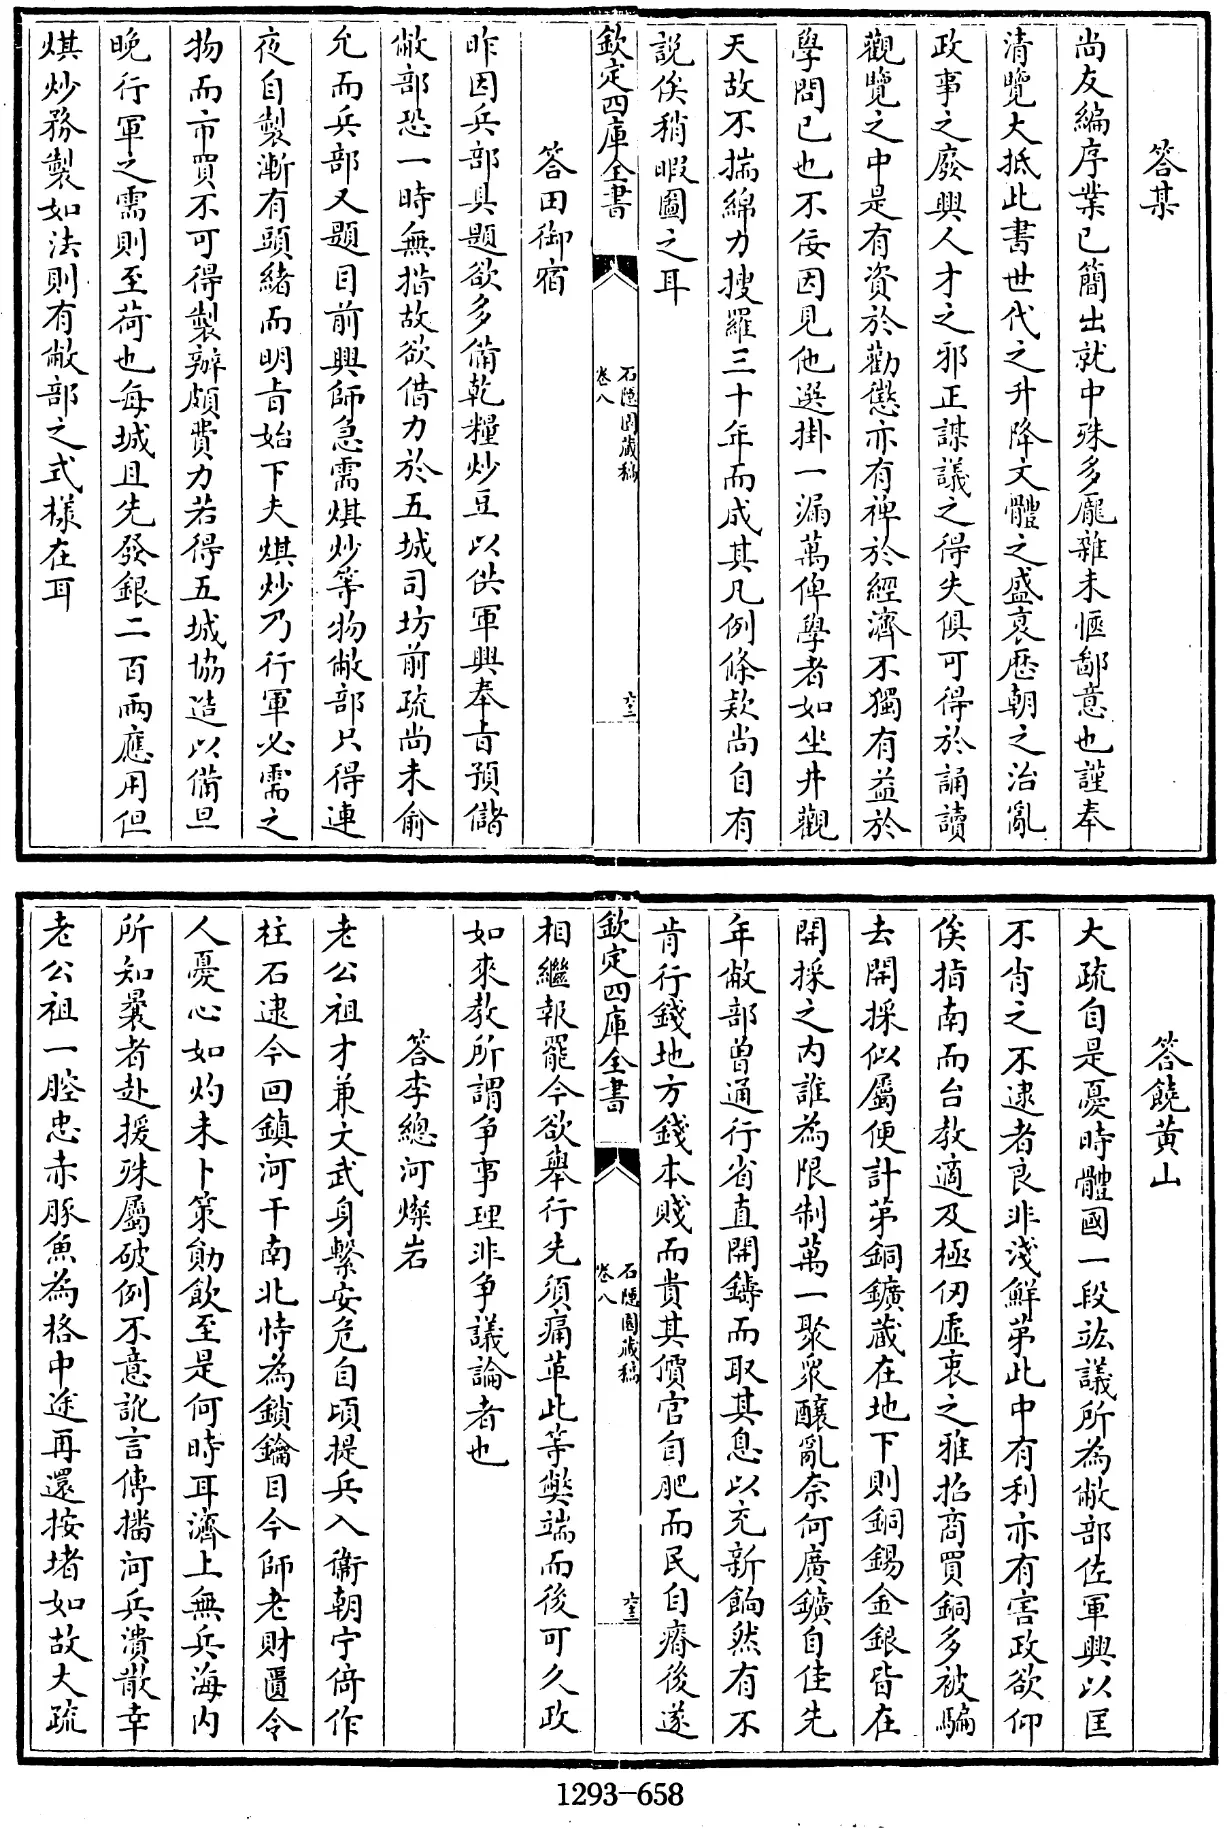 答某
尚友編序業已簡出就中殊多龐雜未愜鄙意也謹奉
清覽大抵此書世代之升降文體之盛衰歷朝之治亂
政事之廢興人才之邪正謀議之得失俱可得於誦讀
觀覽之中是有資於勸懲亦有裨於經濟不獨有益於
學問已也不佞因見他選掛一漏萬俾學者如坐井觀
天故不揣綿力搜羅三十年而成其凡例條款尚自有
說俟稍暇圖之耳
欽定四庫全書
石隱園藏稿
卷八
六十二
答田御宿
昨因兵部具題欲多備乾糧炒豆以供軍興奉旨預儲
敝部恐一時無措故欲借力於五城司坊前疏尚未俞
允而兵部又題目前興師急需煤炒等物敝部只得連
夜自製漸有頭緒而明旨始下夫煤炒乃行軍必需之
物而市買不可得製辦頗費力若得五城協造以備旦
晚行軍之需則至荷也每城且先發銀二百兩應用但
煤炒務製如法則有敝部之式樣在耳
答饒黃山
大疏自是憂時體國一段竑議所為敝部佐軍興以匡
不肖之不逮者良非淺鮮第此中有利亦有害政欲仰
俟指南而台教適及極仞虛衷之雅招商買銅多被騙
去開採似屬便計第銅鑛藏在地下則銅錫金銀皆在
開採之內誰為限制萬一聚衆釀亂奈何廣鑛自佳先
年敝部曾通行省直開鑄而取其息以充新餉然有不
肯行錢地方錢本賤而貴其價官自肥而民自瘠後遂
欽定四庫全書
石隱園藏稿
卷八
六十三
相繼報罷今欲舉行先須痛革此等弊端而後可久政
如來教所謂爭事理非爭議論者也
答李總河燦岩
老公祖才兼文武身繫安危自頃提兵入衛朝宁倚作
柱石逮今回鎮河干南北恃為鎖鑰目今師老財匱令
人憂心如灼未卜策勛飲至是何時耳濟上無兵海內
所知曩者赴援殊屬破例不意訛言傳播河兵潰散幸
老公祖一腔忠赤豚魚為格中途再還按堵如故大疏
1293-658